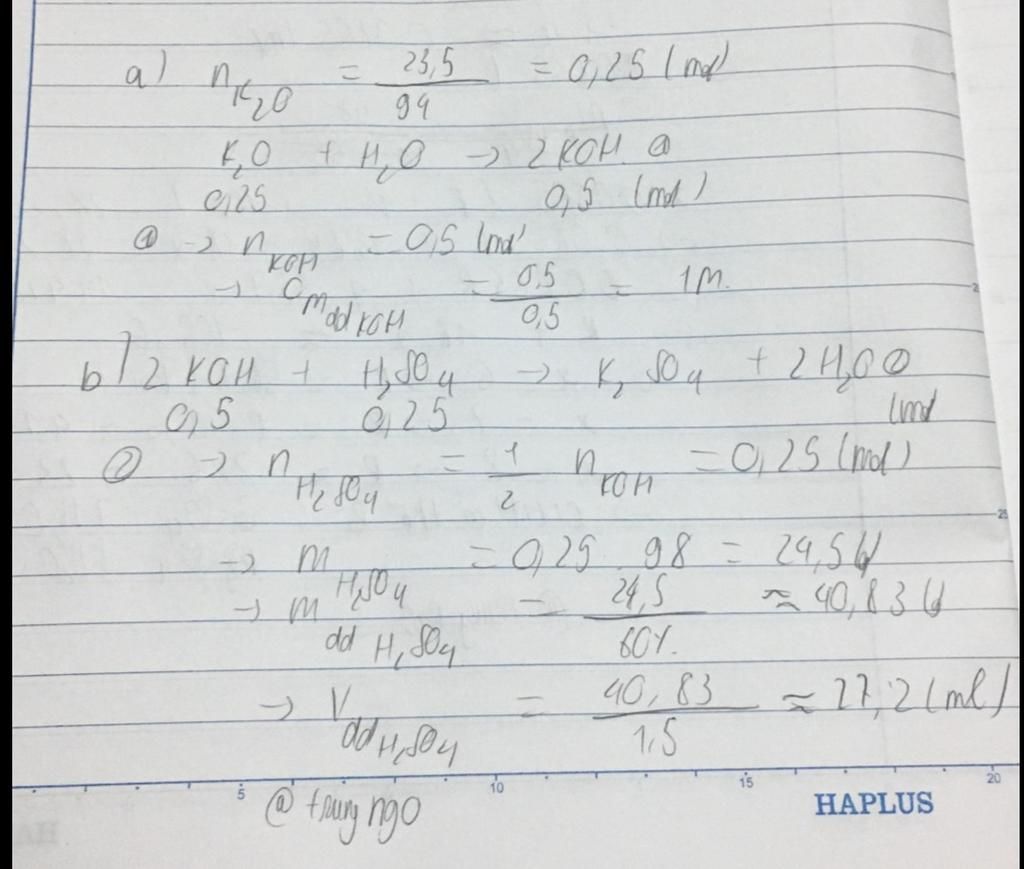 a) n K₂O = 23,5 / 94 = 0,25 (mol)
K₂O + H₂O → 2 KOH ①
0,25 0,5 (mol)
① → n KOH = 0,5 (mol)
→ C M dd KOH = 0,5 / 0,5 = 1M.
b) 2 KOH + H₂SO₄ → K₂SO₄ + 2 H₂O ②
0,5 0,25 (mol
② → n H₂SO₄ = 1/2 n KOH = 0,25 (mol)
→ m H₂SO₄ = 0,25 . 98 = 24,5
→ m dd H₂SO₄ = 24,5 / 60%. ≈ 40,83
→ V dd H₂SO₄ = 40,83 / 1,5 ≈ 27,2 (ml)
5 10 15 20
@ trung ngo HAPLUS